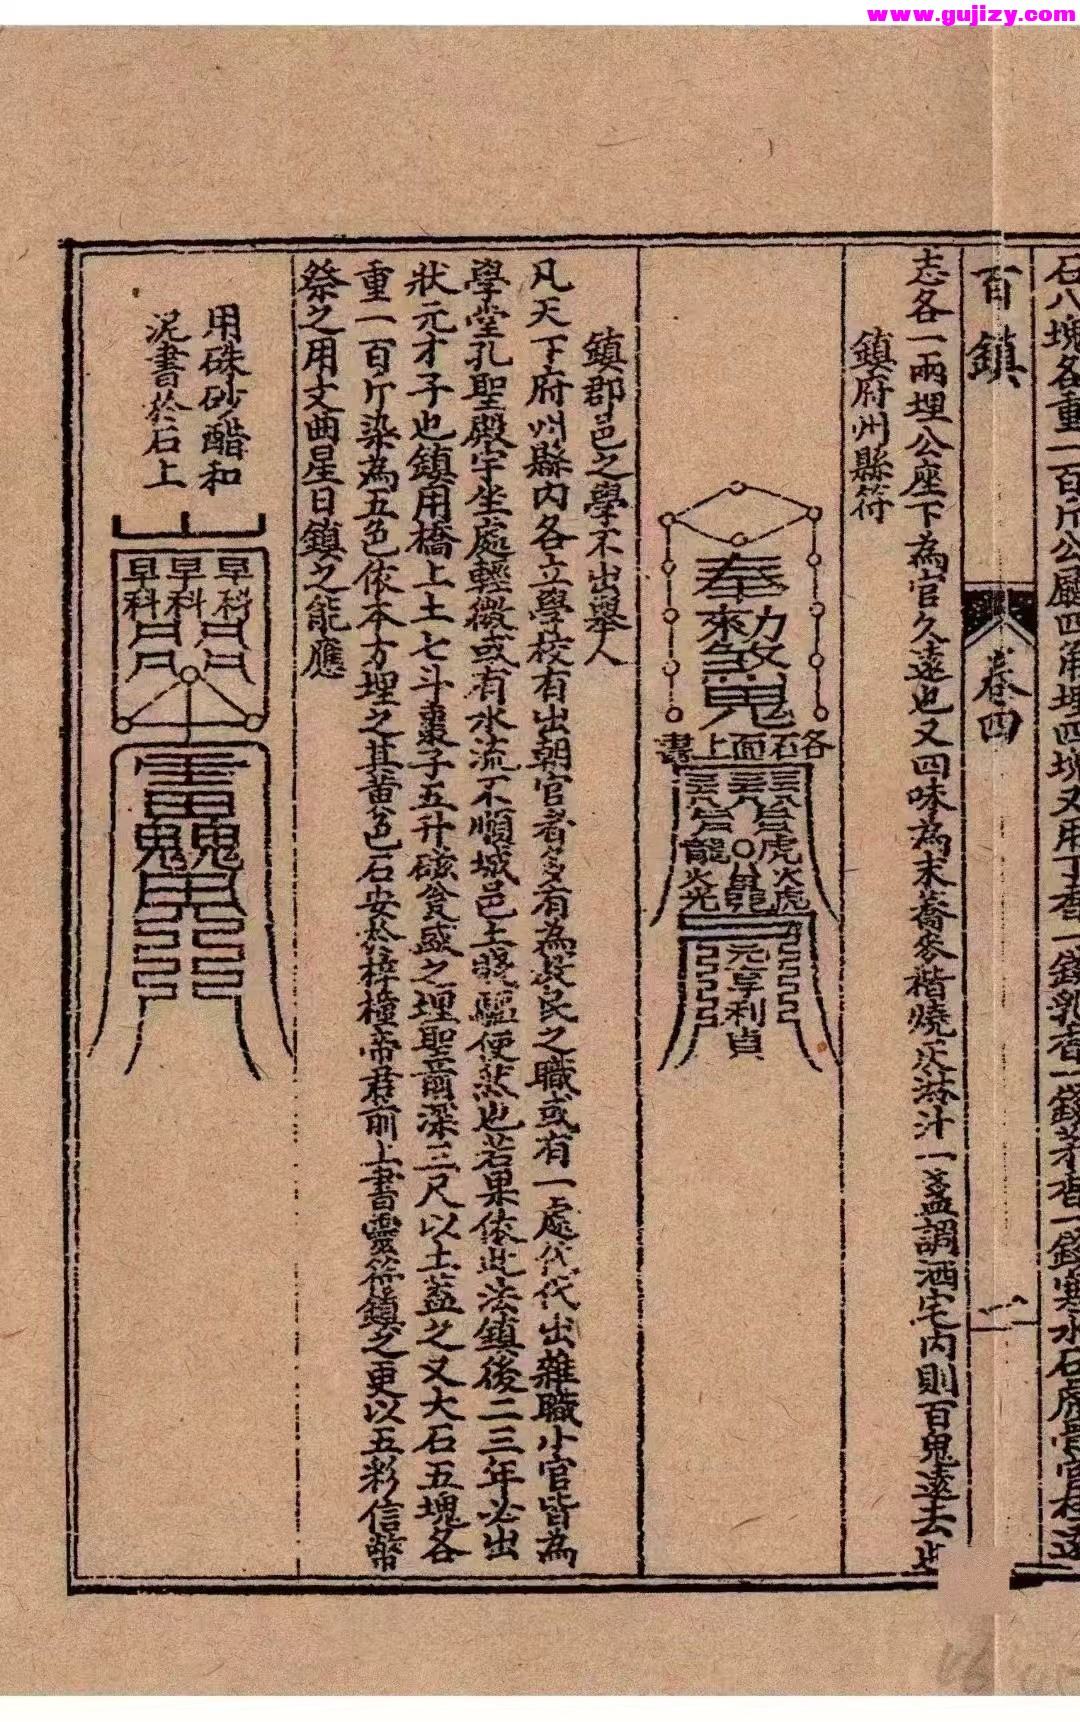 www.gujizy.com
石八塊各重一百斤公廳四角埋四塊又用丁香一錢乳香一錢茅香一錢寒水石虎骨官桂遠
百鎮
卷四
志各一兩埋公座下為官久遠也又四味為末蕎麥稭燒灰淋汁一盞調洒宅內則百鬼遠去也
鎮府州縣符
奉
勑煞
鬼
各石面上書
虎火虎
龍火光
元亨利貞
鎮郡邑之學不出舉人
凡天下府州縣內各立學校有出朝官者多有為牧民之職或有一處代代出雜職小官皆為
學堂孔聖殿宇坐處輕微或有水流不順城邑土嶷驅使然也若果依此法鎮後二三年必出
狀元才子也鎮用橋上土七斗棗子五升磁瓮盛之埋聖前深三尺以土蓋之又大石五塊各
重一百斤染為五色依本方埋之其黃色石安於梓橦帝君前上書靈符鎮之更以五彩信幣
祭之用文曲星日鎮之能應
用硃砂醋和
泥書於石上
早早早
科科科